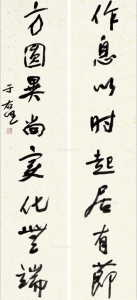 作息以时起居有節
方圓異尚變化無端
于右任